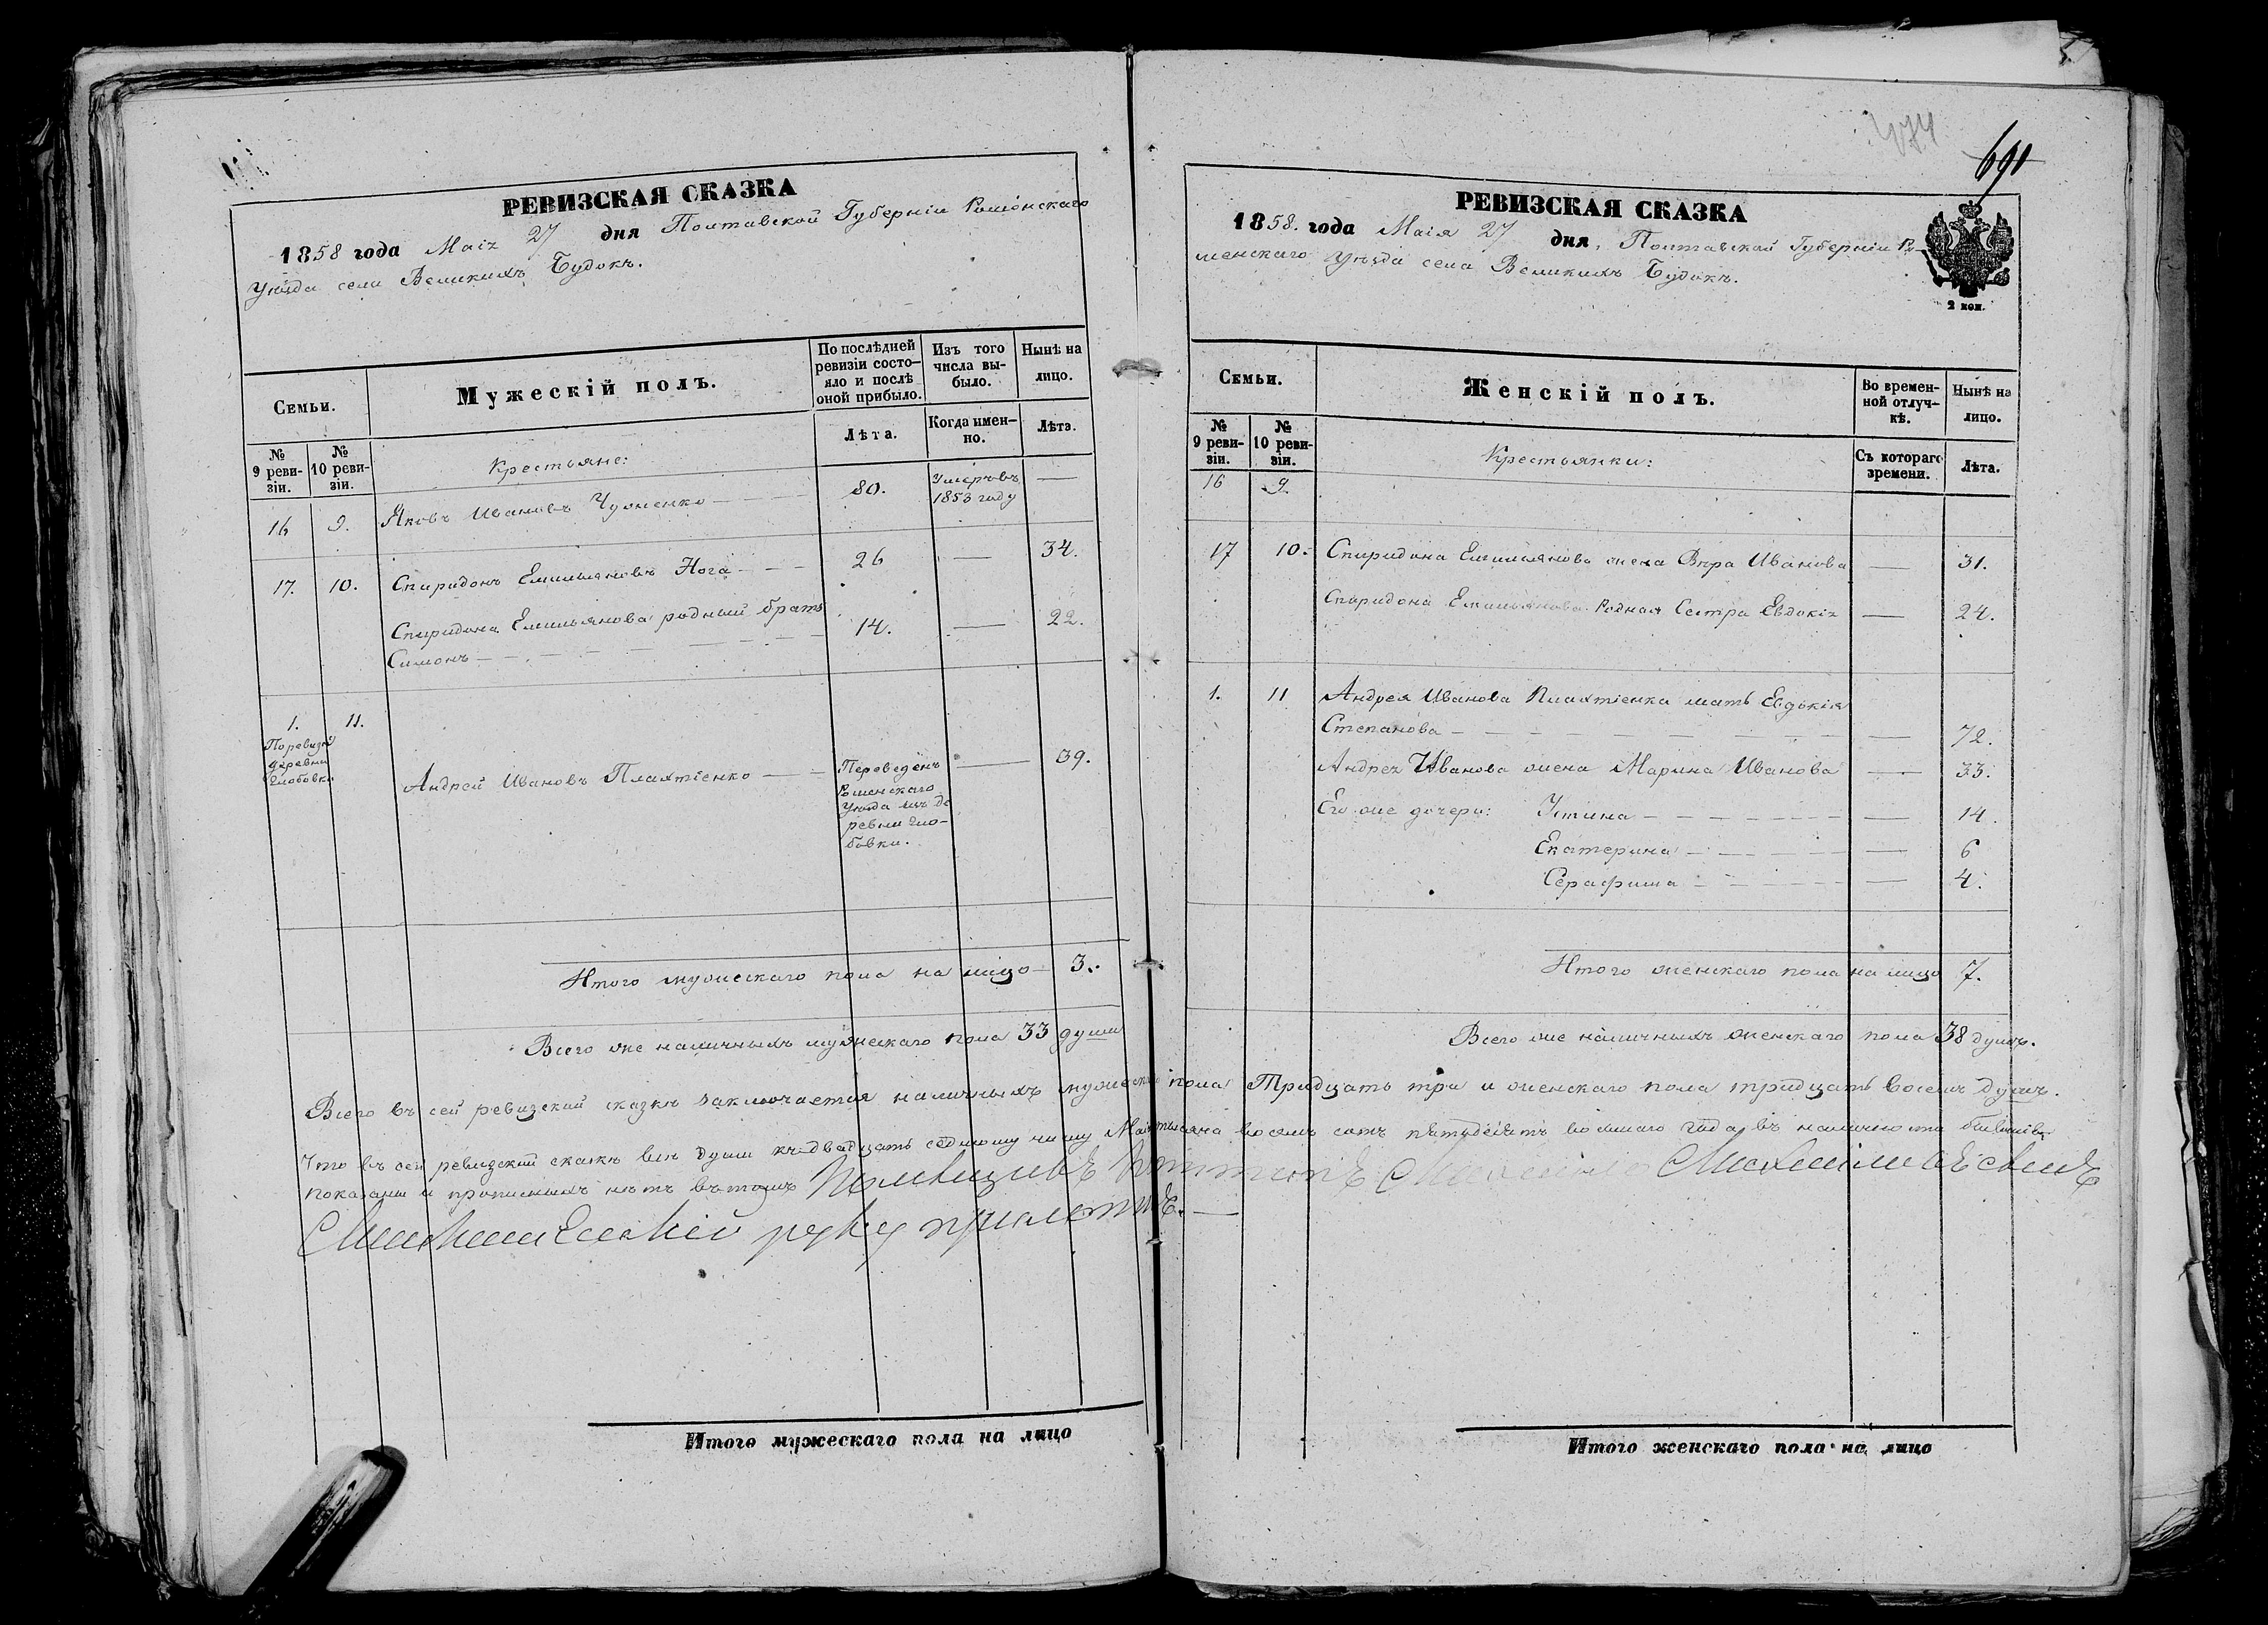 РЕВИЗСКАЯ СКАЗКА
1858 года Маія 27 дня Полтавской Губерніи Роменскаго
Уѣзда села Великихъ Будокъ.
Семьи.
Мужескій полъ.
По послѣдней ревизіи состо-
яло и послѣ
оной прибыло.
Изъ того
числа вы-
было.
Нынѣ на
лицо.
Лѣта.
Когда имен-
но.
Лѣта.
№
9 реви-
зіи.
№
10 реви-
зіи.
Крестьяне:
16 9. Яковъ Ивановъ Чуменко 80. Умеръ въ
1853 году
17. 10. Спиридонъ Емильяновъ Нога 26 34.
Спиридона Емильянова родный братъ
Симонъ 14. 22.
1. 11.
По ревизіи
деревни
Андрей Ивановъ Плахтіенко 39.
Переведенъ
Роменскаго
Уѣзда изъ де
ревни
Итого мужескаго пола на лицо 3.
Всего же наличныхъ мужескаго пола 33 души
РЕВИЗСКАЯ СКАЗКА
474
691
1858. года Маія 27 дня, Полтавской Губерніи Ро-
менскаго Уѣзда села Великихъ Будокъ.
2 коп.
Семьи.
Женскій полъ.
Во времен-
ной отлуч-
кѣ.
Нынѣ на
лицо.
№
9 реви-
зіи.
№
10 реви-
зіи.
Крестьянки:
Съ котораго
времени.
Лѣта.
16 9.
17 10. Спиридона Емильянова жена Вѣра Иванова 31.
Спиридона Емильянова Родная Сестра Евдокія 24.
1. 11 Андрея Иванова Плахтіенка мать Евдокія
Степанова 72.
Андрея Иванова жена Марина Иванова 33.
Его же дочери: Устина 14.
Екатерина 6
Серафима 4.
Итого женскаго пола на лицо 7.
Всего же наличныхъ женскаго пола 38 душъ.
Всего въ сей ревизской сказкѣ заключается наличныхъ мужеска пола Тридцать три и женскаго пола тридцать восемь душъ.
Что въ сей ревизской сказкѣ всѣ души къ двадцать седьмому числу Маія тысяча восемь сотъ пятьдесятъ восьмаго года въ наличности бывшія
показаны и прописныхъ нѣтъ въ томъ Помѣщикъ
руку приложилъ.
Итого мужескаго пола на лицо
Итого женскаго пола на лицо